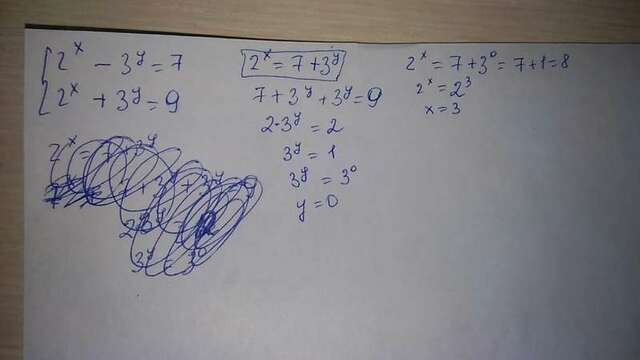 2^x - 3^y = 7
2^x + 3^y = 9
2^x = 7 + 3^y
7 + 3^y + 3^y = 9
2·3^y = 2
3^y = 1
3^y = 3^0
y = 0
2^x = 7 + 3^0 = 7 + 1 = 8
2^x = 2^3
x = 3